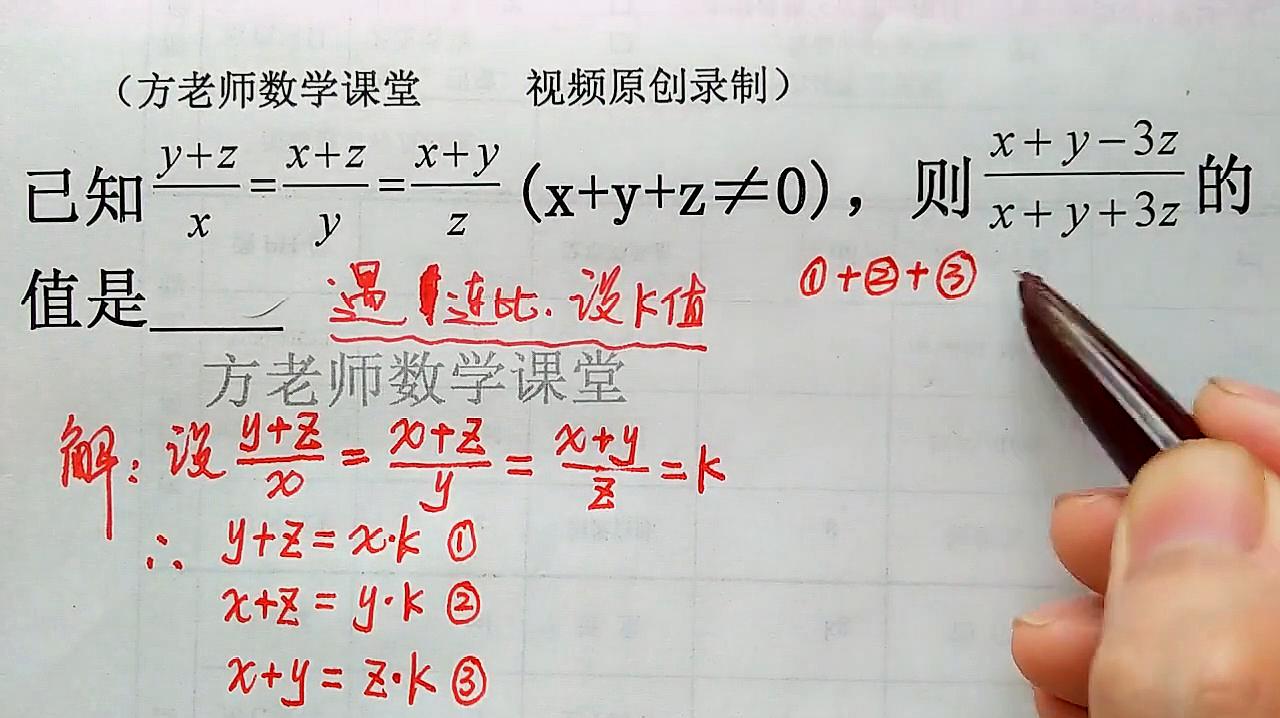 （方老师数学课堂 视频原创录制）
已知 (y+z)/x = (x+z)/y = (x+y)/z (x+y+z≠0)，则 (x+y−3z)/(x+y+3z) 的
值是____
遇连比.设K值
①+②+③
方老师数学课堂
解：设 (y+z)/x = (x+z)/y = (x+y)/z = k
∴ y+z = x·k ①
x+z = y·k ②
x+y = z·k ③